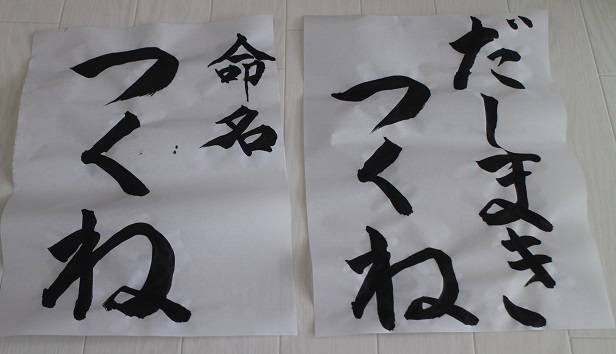 命名
つくね
だしまき
つくね